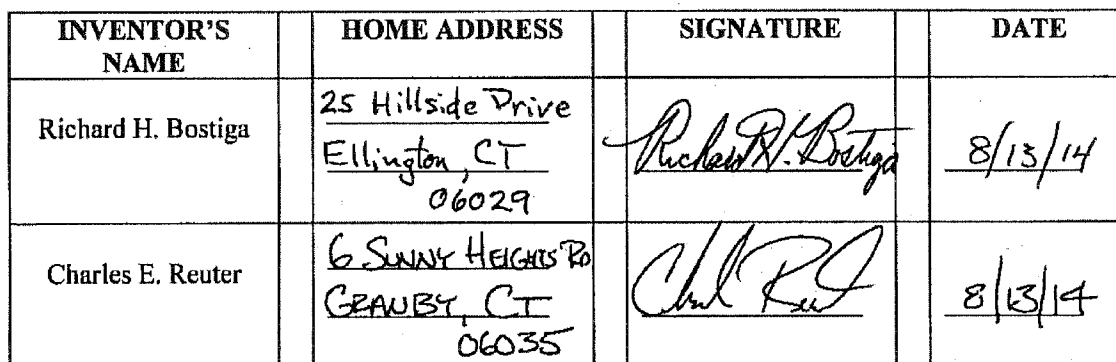 INVENTOR'S NAME HOME ADDRESS SIGNATURE DATE
Richard H. Bostiga
25 Hillside Drive
Ellington, CT
06029
Richard H. Bostiga
8/13/14
Charles E. Reuter
6 SUNNY HEIGHTS RD
GRANBY, CT
06035
Chal Reut
8/13/14